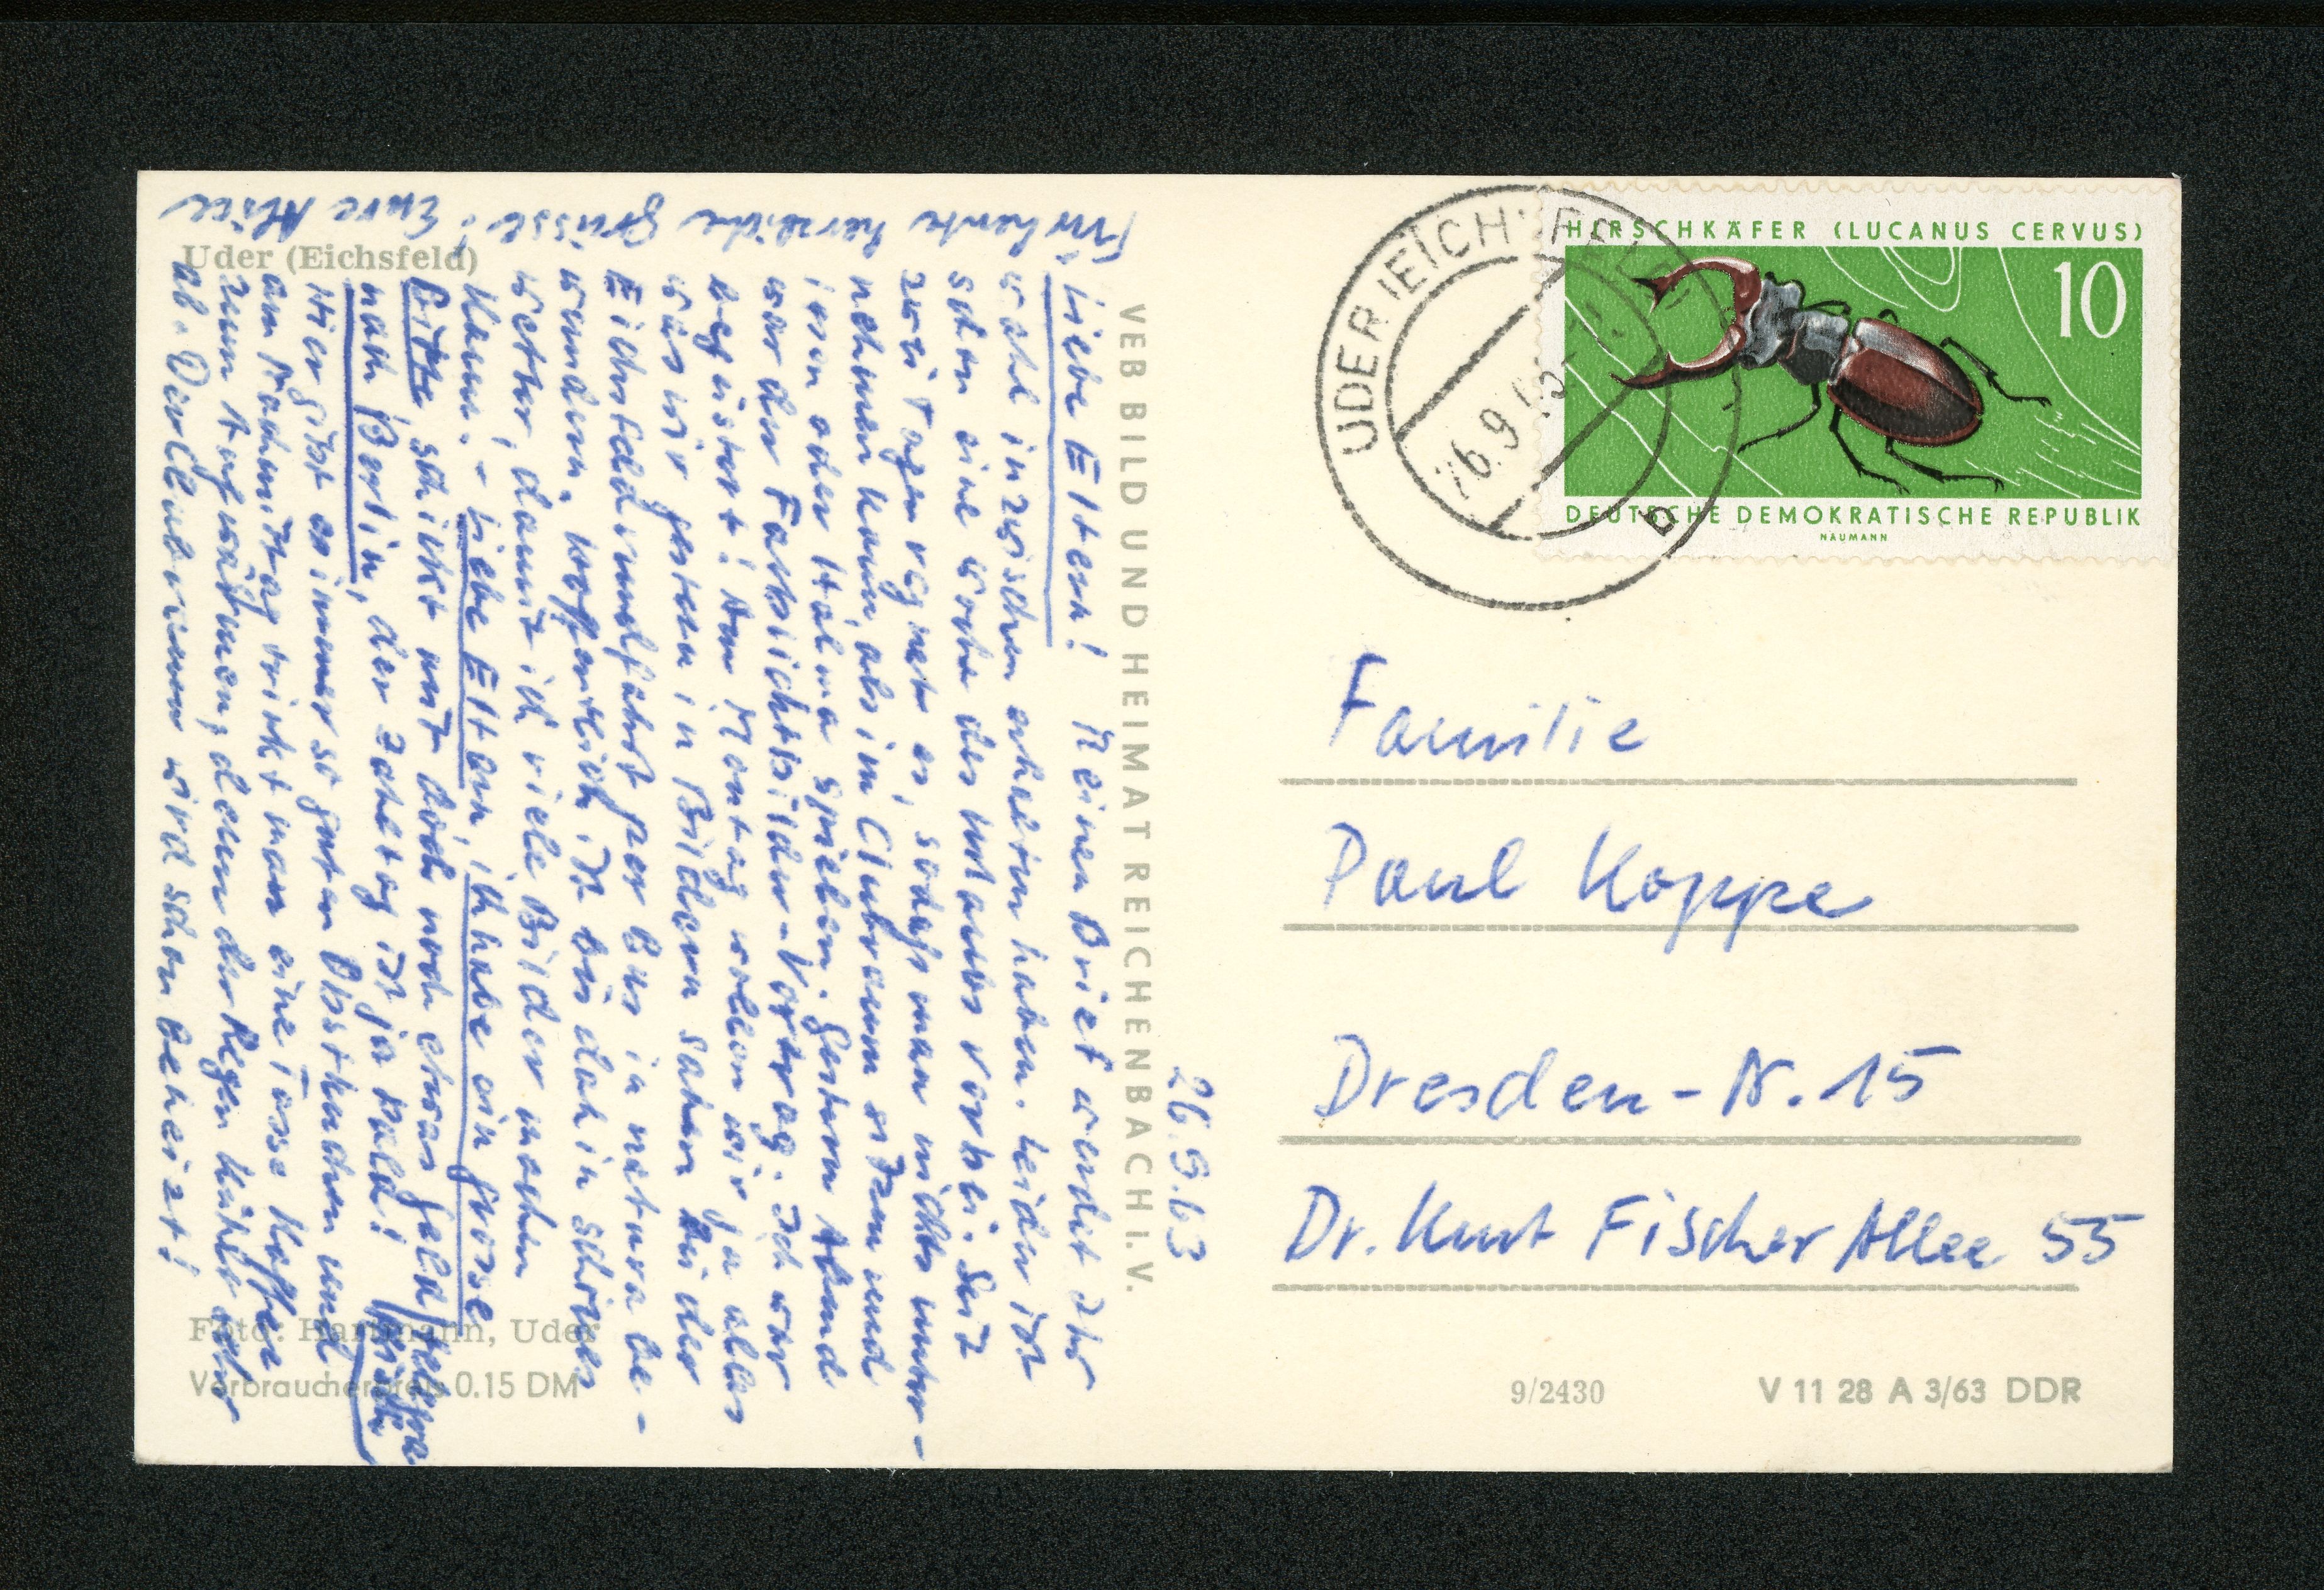 Uder (Eichsfeld)
26.9.63
Liebe Eltern! Meinen Brief werdet Ihr
wohl inzwischen erhalten haben. Leider ist
schon eine Woche des Urlaubs vorbei. Seit
zwei Tagen regnet es, sodaß man nichts unter-
nehmen kann, als im Clubraum sitzen und
lesen oder Halma spielen. Gestern Abend
war der Farblichtbilder-Vortrag. Ich war
begeistert! Am Montag wollen wir ja alles
was wir gestern in Bildern sahen bei der
Eichsfeldrundfahrt per Bus in natura be-
wundern. Hoffentlich ist bis dahin schönes
Wetter, damit ich viele Bilder machen
kann. - Liebe Eltern, ich habe ein grosse
Bitte, schickt mir doch noch etwas Geld
nach Berlin, der Zahltag ist ja bald!
Hier gibt es immer so guten Obstkuchen und
am Nachmittag trinkt man eine Tasse Kaffee
zum Aufwärmen, denn der Regen kühlt sehr
ab. Der Clubraum wird schon beheizt!
Für heute herzliche Grüsse! Eure
VEB BILD UND HEIMAT REICHENBACH I. V.
Foto: Hartmann, Uder
Verbraucherpreis 0.15 DM
UDER (EICHSFELD)
26.9.
b
HIRSCHKÄFER (LUCANUS CERVUS)
10
DEUTSCHE DEMOKRATISCHE REPUBLIK
NAUMANN
Familie
Paul Koppe
Dresden-N. 15
Dr. Kurt Fischer Allee 55
9/2430
V 11 28 A 3/63 DDR